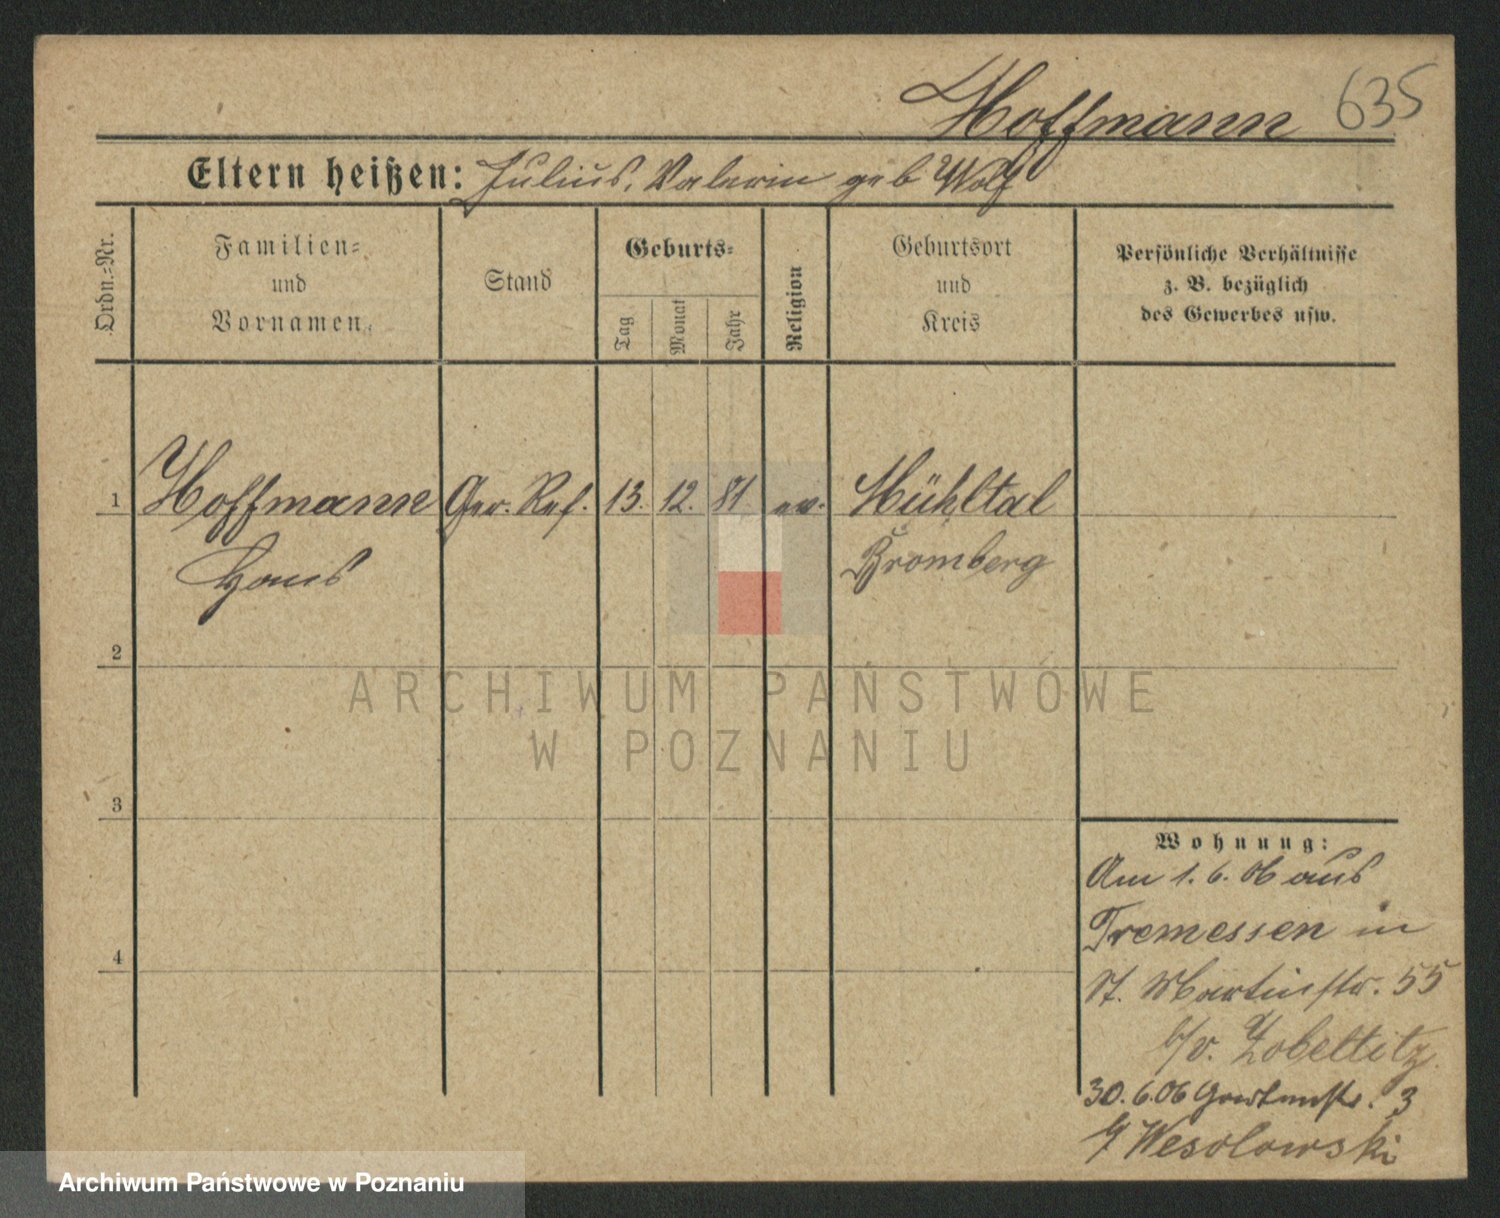 Hoffmann 635
Eltern heißen: Julius, Valerie geb Wolf
Ordn.=Nr.
Familien=
und
Vornamen.
Stand
Geburts=
Tag
Monat
Jahr
Religion
Geburtsort
und
Kreis
Persönliche Verhältnisse
z. B. bezüglich
des Gewerbes usw.
1 Hoffmann Ger. Ref. 13. 12. 81 ev. Mühltal
Hans Bromberg
2
3
4
Wohnung:
Am 1. 6. 06 aus
Tremessen in
St. Martinstr. 55
b/v. Zobeltitz
30. 6. 06 Gartenstr. 3
b/ Wesolowski
ARCHIWUM PAŃSTWOWE
W POZNANIU
Archiwum Państwowe w Poznaniu